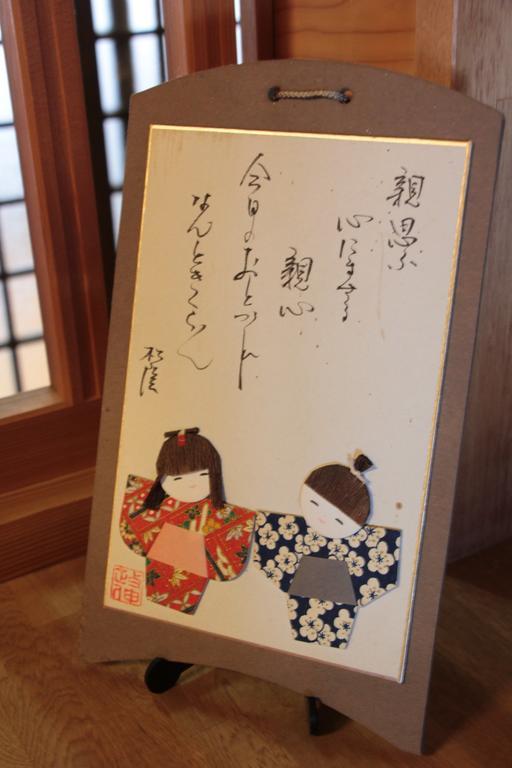 親思ふ
心にまさる
親心
今日のおとづれ
なんときくらん
松陰